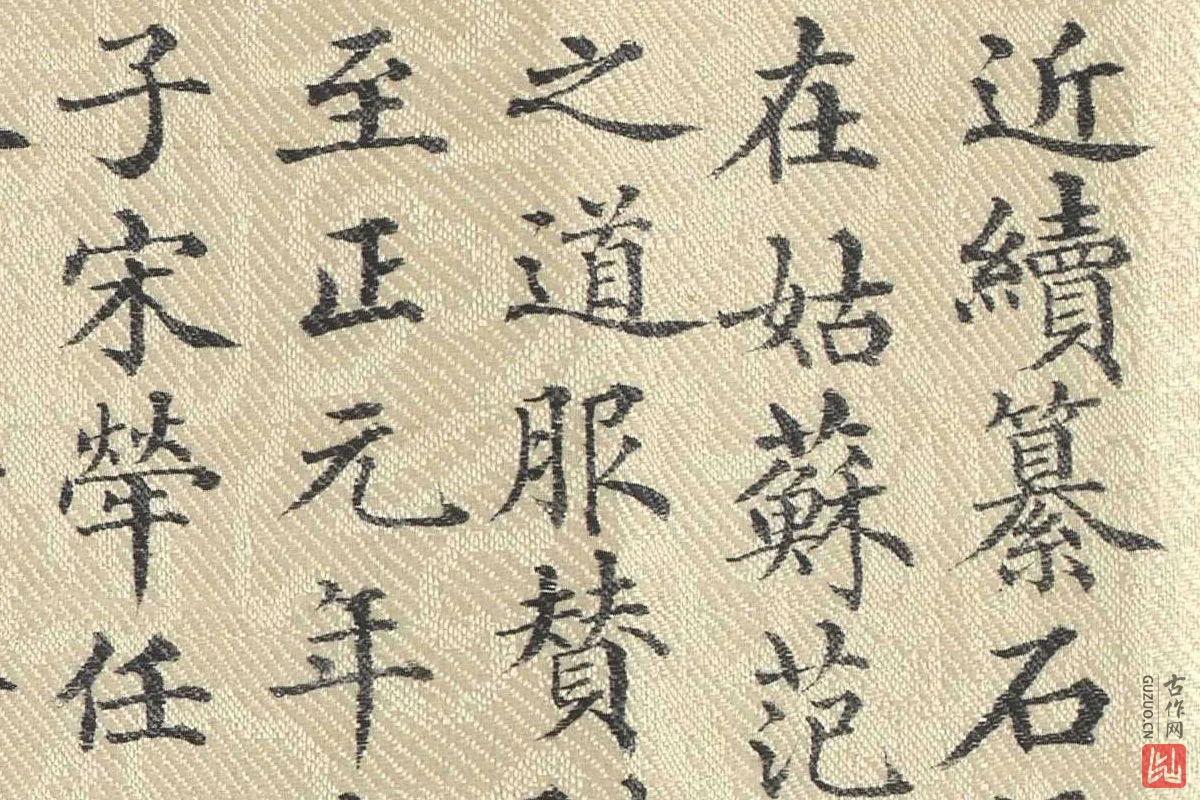 近續纂石
在姑蘇范
之道服贊
至正元年
子宋犖任
古作网
GUZUO.CN